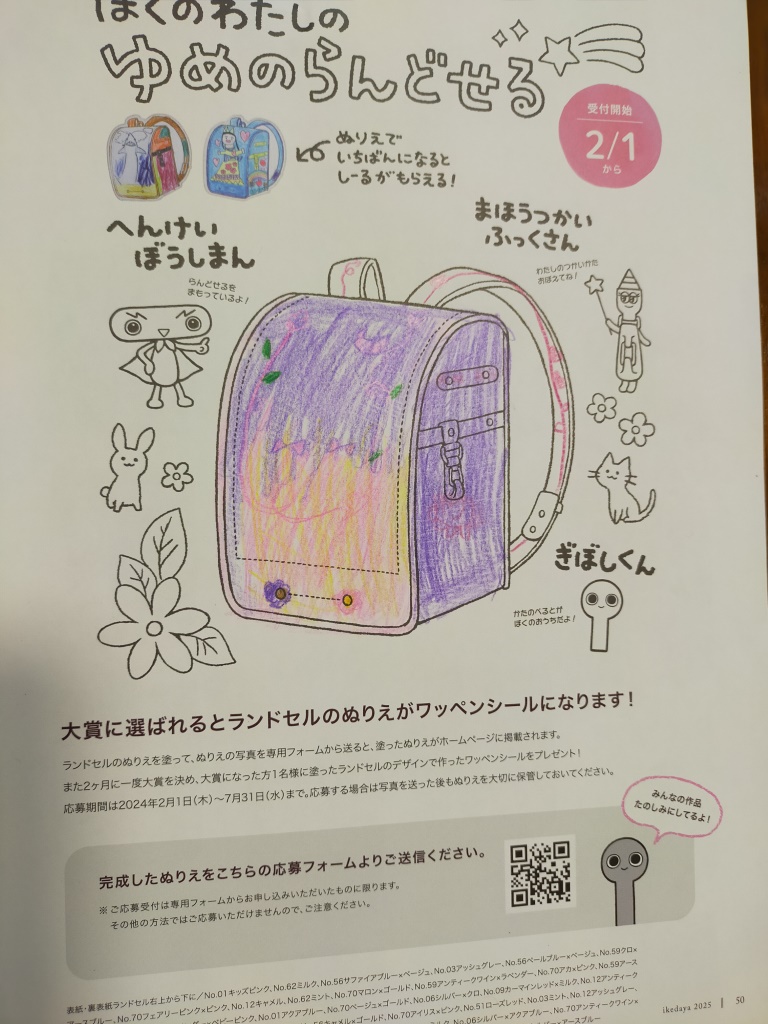 ぼくのわたしの
ゆめのらんどせる
受付開始
2/1
から
ぬりえで
いちばんになると
しーるがもらえる!
へんけい
ぼうしまん
らんどせるを
まもっているよ!
まほうつかい
ふっくさん
わたしのつかいかた
おぼえてね!
ぎぼしくん
かたのべるとが
ぼくのおうちだよ!
大賞に選ばれるとランドセルのぬりえがワッペンシールになります!
ランドセルのぬりえを塗って、ぬりえの写真を専用フォームから送ると、塗ったぬりえがホームページに掲載されます。
また2ヶ月に一度大賞を決め、大賞になった方1名様に塗ったランドセルのデザインで作ったワッペンシールをプレゼント!
応募期間は2024年2月1日(木)〜7月31日(水)まで。応募する場合は写真を送った後もぬりえを大切に保管しておいてください。
みんなの作品
たのしみにしてるよ!
完成したぬりえをこちらの応募フォームよりご送信ください。
※ご応募受付は専用フォームからお申し込みいただいたものに限ります。
その他の方法ではご応募いただけませんので、ご注意ください。
表紙・裏表紙ランドセル右上から下に/No.01キッズピンク、No.62ミルク、No.56サファイアブルー×ベージュ、No.03アッシュグレー、No.56ペールブルー×ベージュ、No.59クロ×
アースブルー、No.70フェアリーピンク×ピンク、No.12キャメル、No.62ミント、No.70マロン×ゴールド、No.59アンティークワイン×ラベンダー、No.70アカ×ピンク、No.59アース
ベビーピンク、No.01アクアブルー、No.70ベージュ×ゴールド、No.06シルバー×クロ、No.09カーマインレッド×ミルク、No.12アンティーク
キャメル×ゴールド、No.70アイリス×ピンク、No.51ローズレッド、No.03ミント、No.12アッシュグレー、
No.06シルバー×アクアブルー、No.70アンティークワイン×
アースブルー
ikedaya 2025 | 50